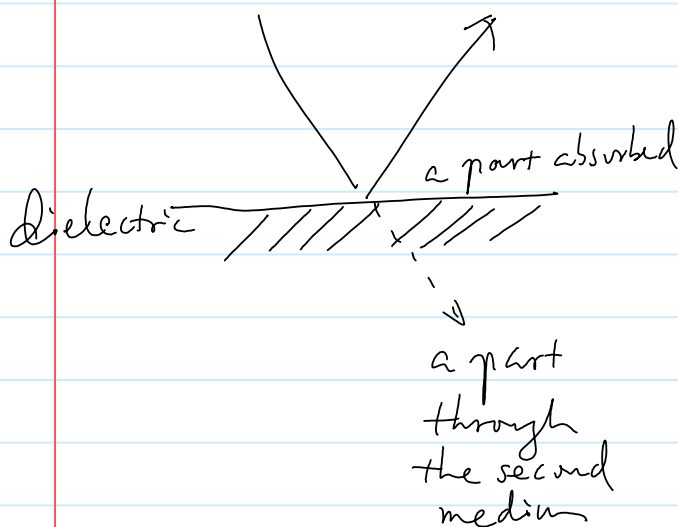 a part absorbed
dielectric
a part
through
the second
medium